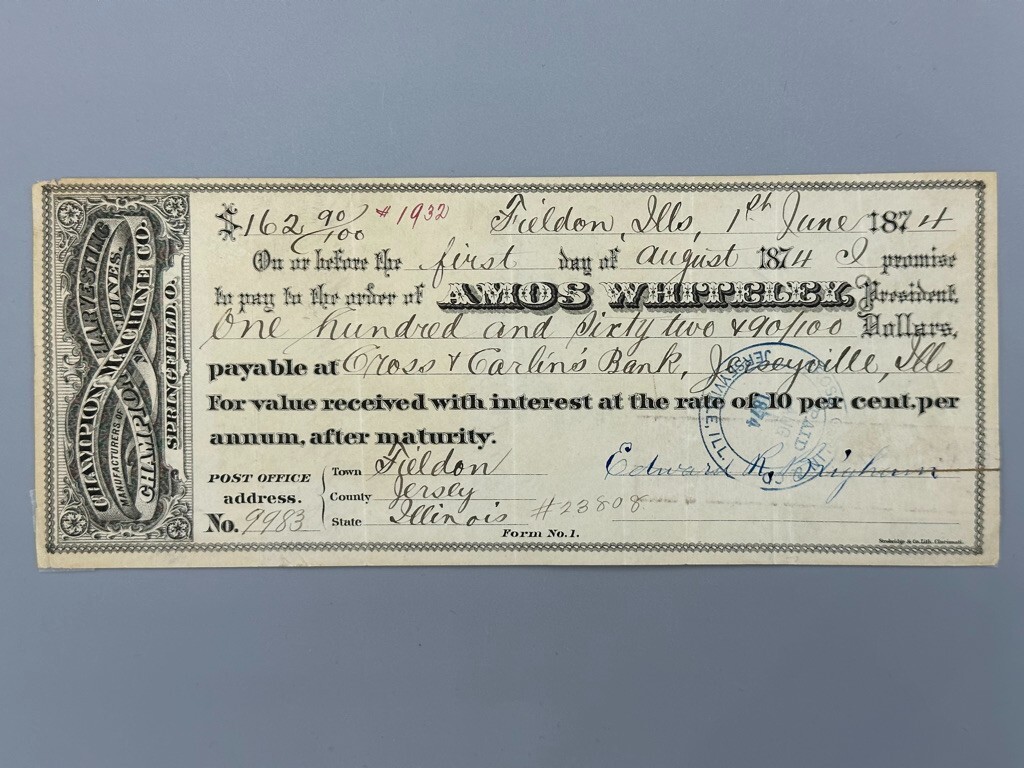 CHAMPION MACHINE CO.
MANUFACTURERS OF
CHAMPION HARVESTING MACHINES.
SPRINGFIELD, O.
$162 90/100 #1932 Fieldon, Ills, 1st June 1874
On or before the first day of august 1874 I promise
to pay to the order of AMOS WHITELEY, President,
One hundred and Sixty two & 90/100 Dollars,
payable at Cross & Carlin's Bank, Jerseyville, Ills
For value received with interest at the rate of 10 per cent, per
annum, after maturity.
JERSEYVILLE, ILL.
PAID
1874
POST OFFICE address.
Town Fieldon
County Jersey
State Illinois
Edward R. Brigham
No. 9983
#23808
Form No. 1.
Strobridge & Co. Lith. Cincinnati.